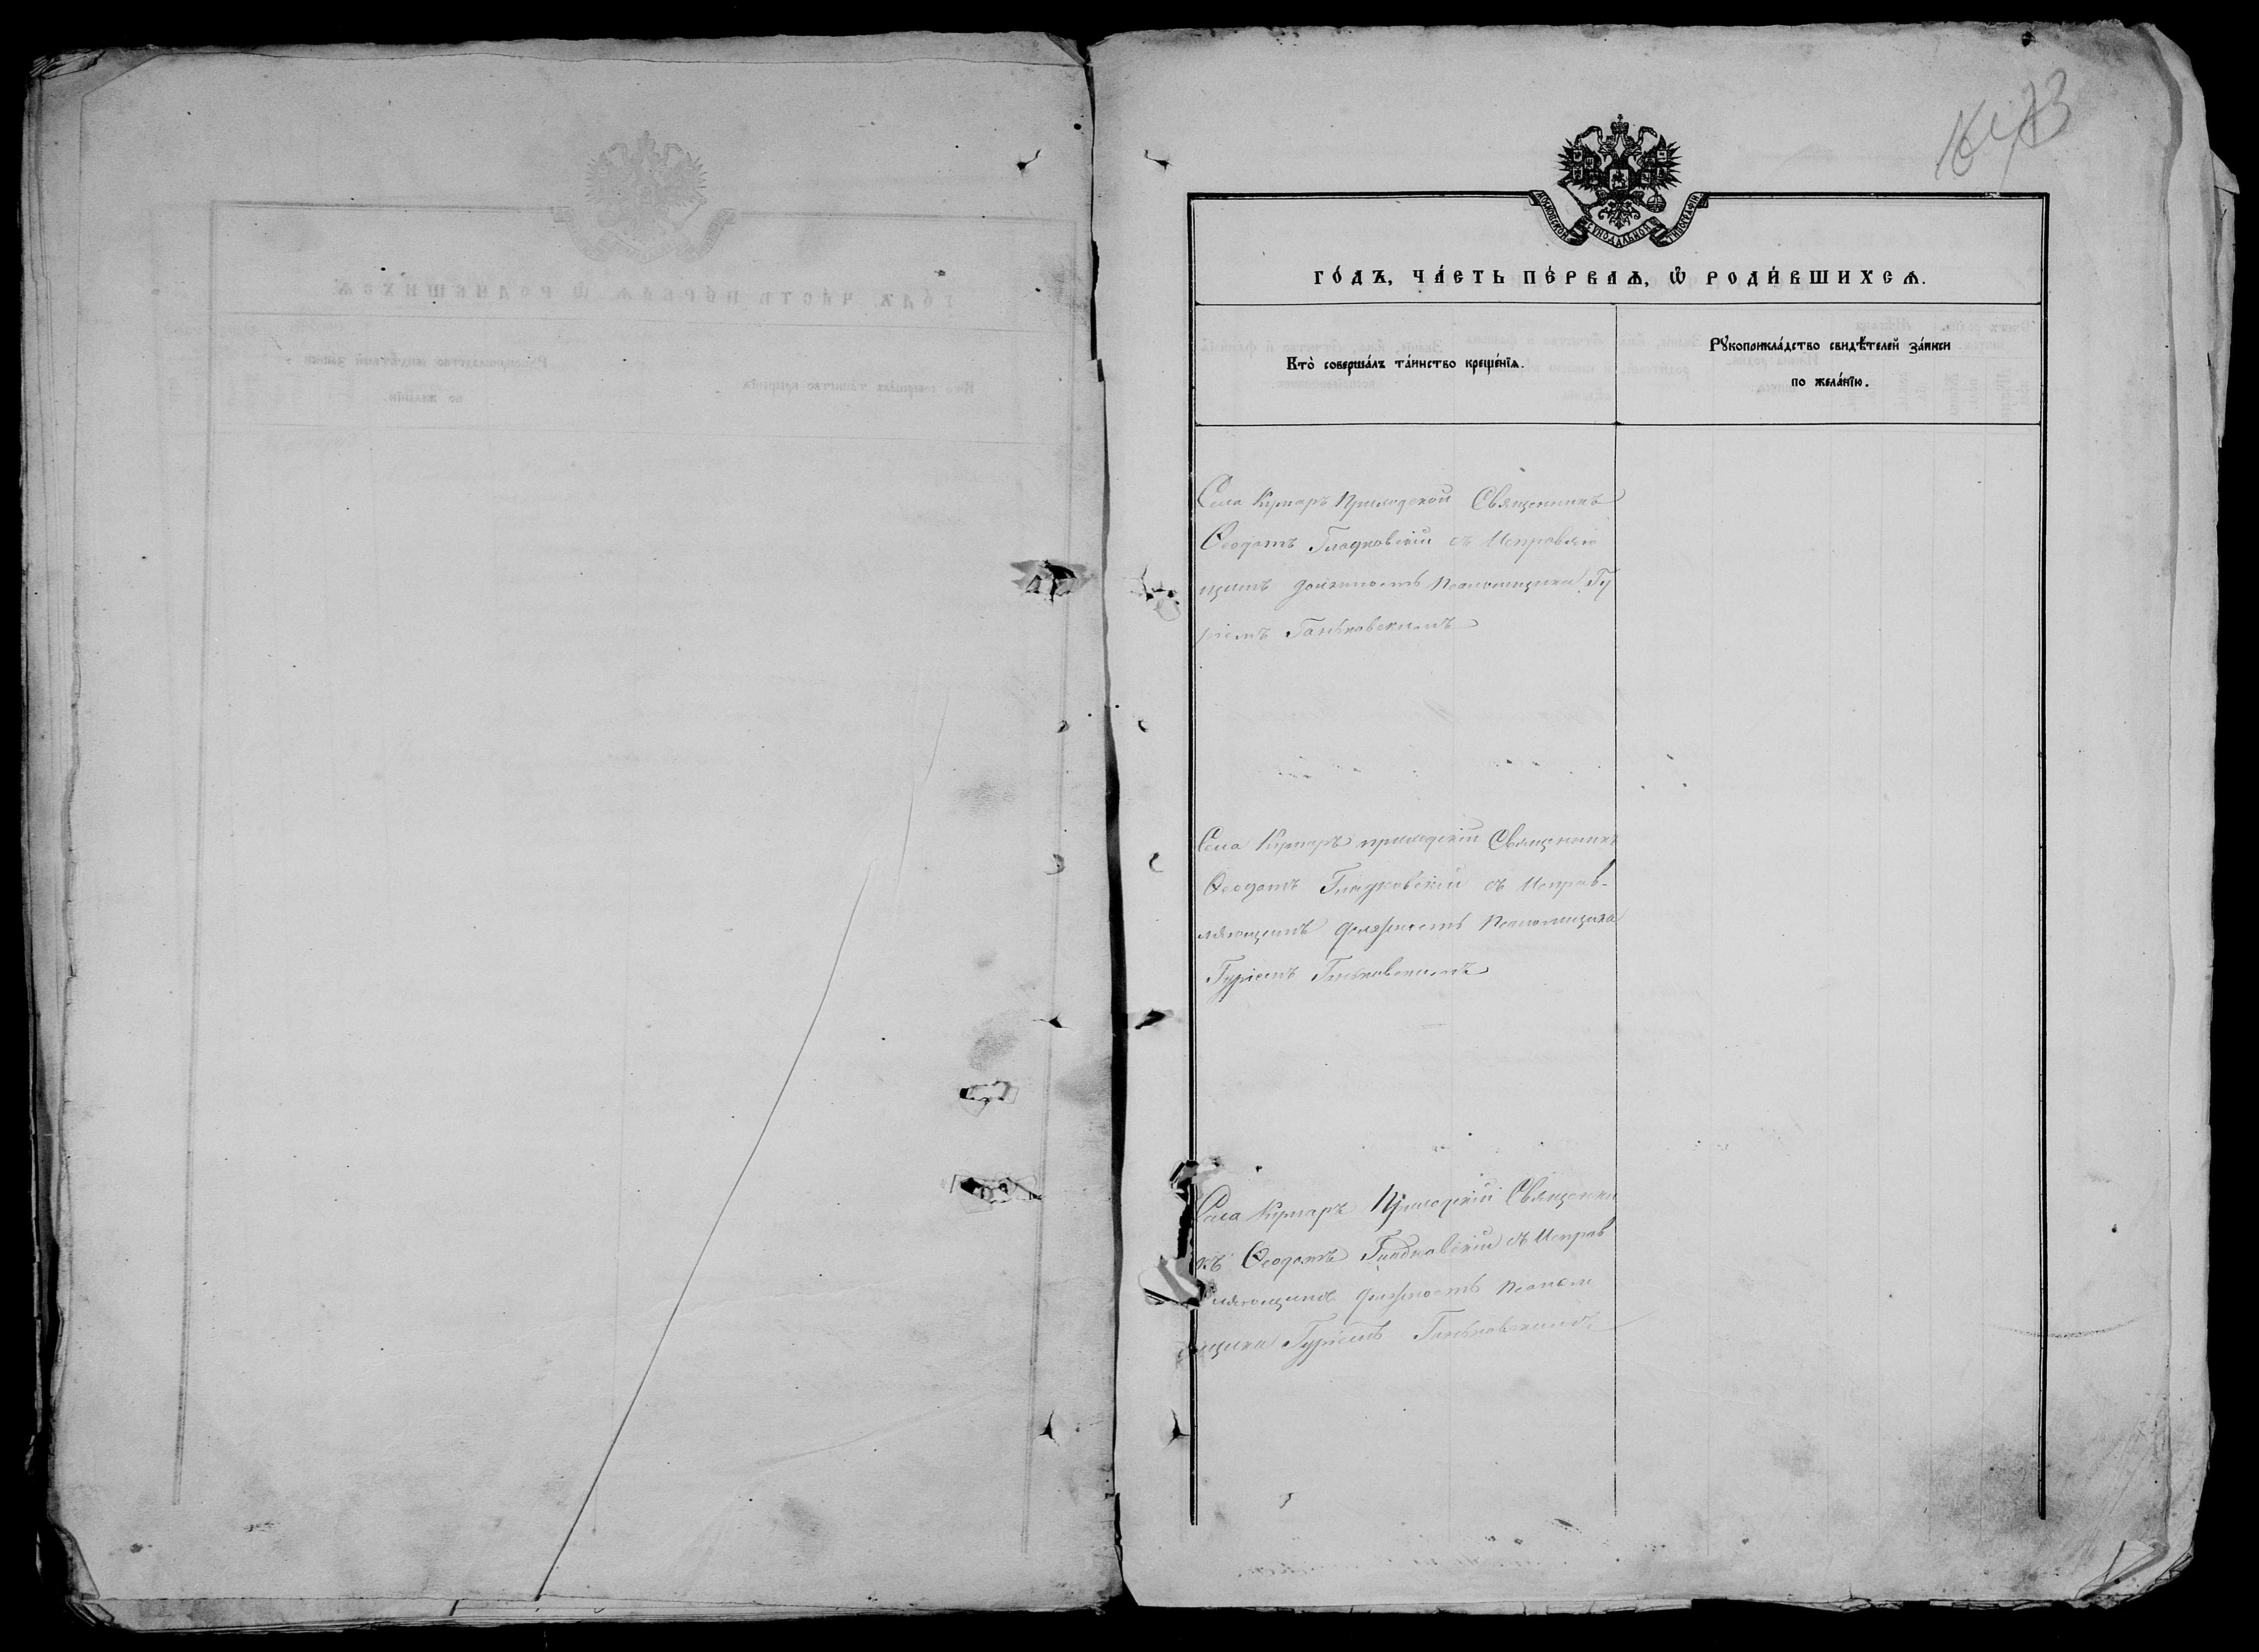 МОСКОВСКОЙ СѴНОДАЛЬНОЙ ТИПОГРАФІИ
ГО́ДЪ, ЧА́СТЬ ПЕ́РВАѦ, Ѽ РОДИ́ВШИХСѦ.
Кто̀ соверша́лъ та́инство креще́нїѧ.
Рꙋкоприкла́дство свидѣ́телей за́писи
по жела́нїю.
Села Кумаръ Приходской Священникъ
Ѳеодотъ Гладковскій съ Исправляю
щимъ должность Псаломщика Гу
ріемъ Ганьковскимъ
Села Кумаръ приходскій Священникъ
Ѳеодотъ Гладковскій съ Исправ-
ляющимъ должность Псаломщика
Гуріемъ Ганьковскимъ
Села Кумаръ Приходскій Священни
къ Ѳеодотъ Гладковскій съ Исправ
ляющимъ должность Псалом
щика Гуріемъ Ганьковскимъ